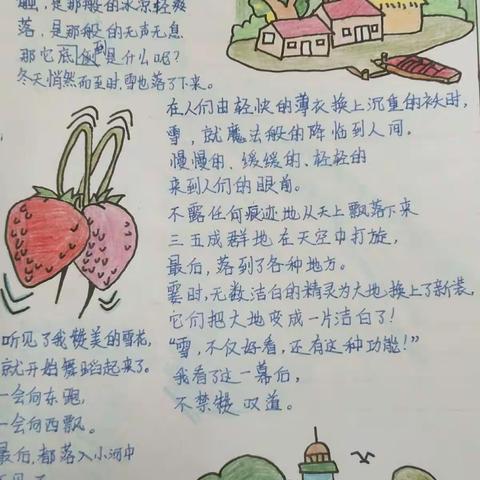 触，是那般的冰凉轻爽
落，是那般的无声无息
那它底到是什么呢？
冬天悄然而至时，雪也落了下来。
在人们由轻快的薄衣换上沉重的袄时，
雪，就魔法般的降临到人间。
慢慢的、缓缓的、轻轻的
来到人们的眼前。
不露任何痕迹地从天上飘落下来
三五成群地在天空中打旋，
最后，落到了各种地方。
霎时，无数洁白的精灵为大地换上了新装，
它们把大地变成一片洁白了！
“雪，不仅好看，还有这种功能！”
我看了这一幕后，
不禁赞叹道。
听见了我赞美的雪花，
就开始舞蹈起来了。
一会向东跑，
一会向西飘。
最后，都落入小河中